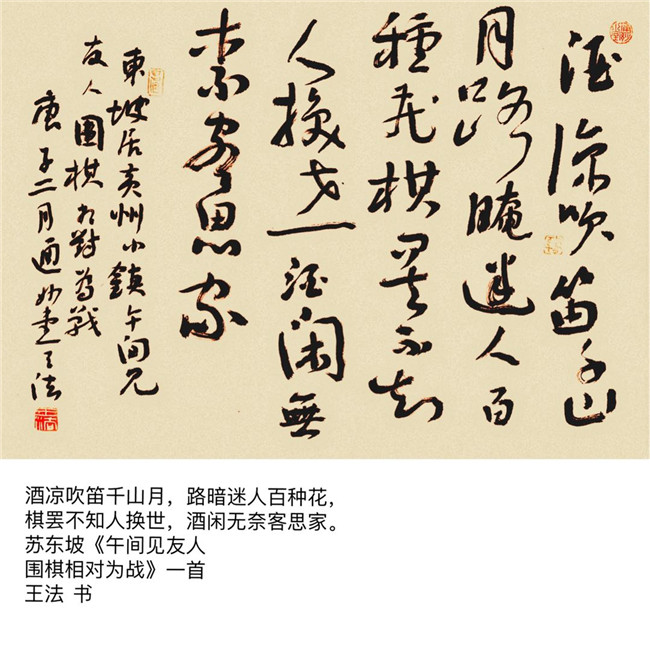 酒涼吹笛千山
月路晻迷人百
種花棋罢不知
人換世酒闲無
柰客思家
東坡居黄州小鎮午间见
友人围棋相對为戰
庚子二月通妙堂王法
酒凉吹笛千山月，路暗迷人百种花，
棋罢不知人换世，酒闲无奈客思家。
苏东坡《午间见友人
围棋相对为战》一首
王法 书